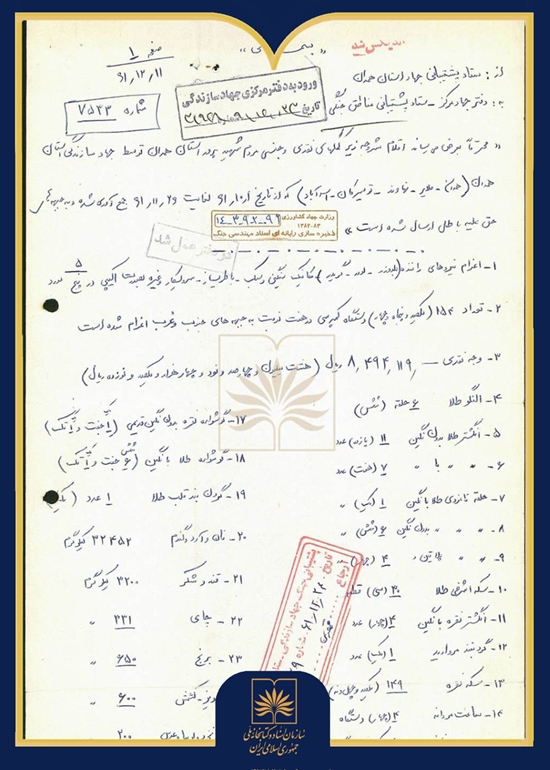 « بسمه تعالی »
صفحه ۱
۶۱,۱۲,۱۱
از: ستاد پشتیبانی جهاد استان همدان
به: دفتر جهاد مرکز - ستاد پشتیبانی مناطق جنگی
ورود به دفتر مرکزی جهاد سازندگی
تاریخ
شماره ۷۵۲۳
« محترماً بعرض میرساند اقلام مشروحه زیر کمکهای نقدی و جنسی مردم شهید پرور استان همدان توسط جهاد سازندگی استان
همدان (همدان - ملایر - نهاوند - تویسرکان - اسدآباد) که از تاریخ لغایت ۶۱,۱۱,۲۹ جمع آوری شده و به جبهه های
حق علیه باطل ارسال شده است
وزارت جهاد کشاورزی
۱۴-۳-۹-۲-۹۲
۱۳۸۲-۸۳
ذخیره سازی رایانه ای اسناد مهندسی جنگ
در دفتر عمل شد
۱- اعزام نیروهای راننده (بلدوزر - لودر - گریدر) مکانیک سنگین و سبک - باطریساز - و غیره بصورت اکیپی در پنج ۵ مورد
۲- تعداد ۱۵۴ (یکصد و پنجاه و چهار) دستگاه کمپرسی در هفت نوبت به جبهه های جنوب و غرب اعزام شده است
۳- وجه نقدی — ۸,۴۹۴,۱۱۹ ریال (هشت میلیون و چهارصد و نود و چهار هزار و یکصد و نوزده ریال)
۴- النگو طلا ۶ حلقه (شش)
۵- انگشتر طلا بدون نگین ۱۱ (یازده) عدد
۶- " " با " ۷ (هفت) عدد
۷- حلقه نامزدی طلا با نگین ۱ (یک) "
۸- " " " بدون نگین ۶ (شش) "
۹- " " پلاتین ۴ (چهار)
۱۰- سکه اشرفی طلا ۳۰ (سی) قطعه
۱۱- انگشتر نقره با نگین ۴ (چهار) عدد
۱۲- گردنبند مروارید ۱ (یک) عدد
۱۳- سکه نقره ۱۴۹ (یکصد و چهل و نه) "
۱۴- ساعت مردانه ۴ (چهار) دستگاه
۱۷- گوشواره نقره بدون نگین قدیمی
۱۸- گوشواره طلا با نگین
۱۹- گردن بند قلب طلا ۱ عدد (یک)
۲۰- نان و آرد و گندم ۳۲۴۵۲ کیلوگرم
۲۱- قند و شکر ۳۲۰۰ کیلوگرم
۲۲- چای ۳۳۱ "
۲۳- برنج ۶۵۰ "
کشمش ۶۰۰ "
۲۰۰
پشتیبانی جنگ جهاد سازندگی
تاریخ ۶۱/۱۲/۲۴
شماره
ارجاع
سازمان اسناد و کتابخانه ملی
جمهوری اسلامی ایران